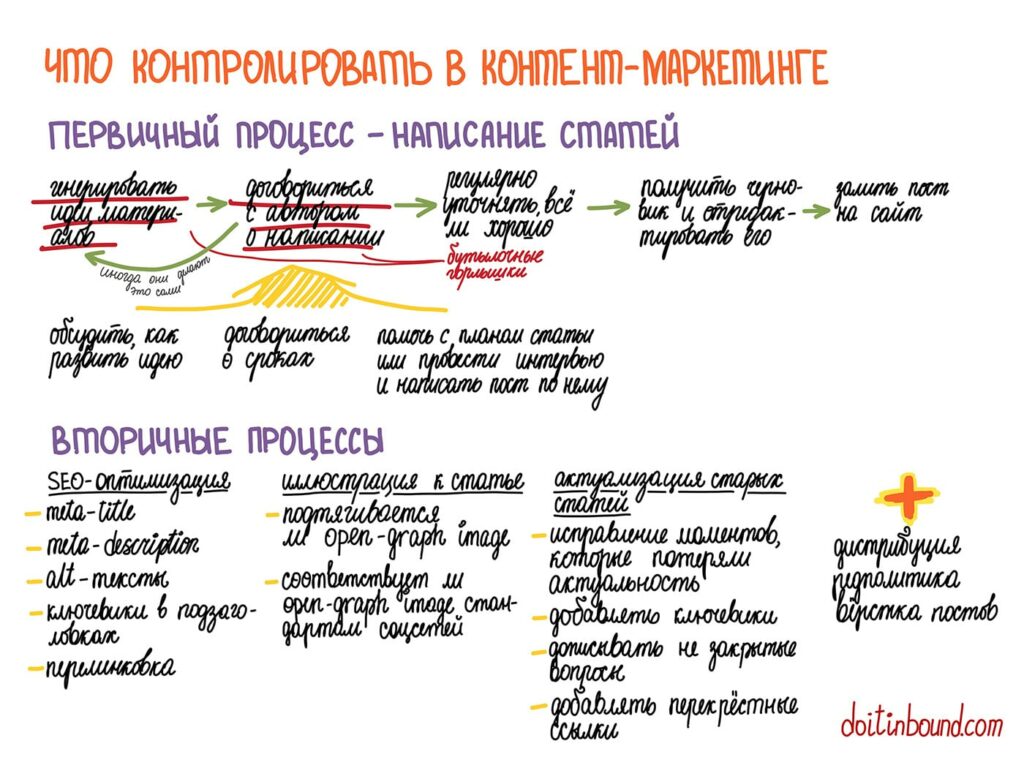 ЧТО КОНТРОЛИРОВАТЬ В КОНТЕНТ-МАРКЕТИНГЕ
ПЕРВИЧНЫЙ ПРОЦЕСС – НАПИСАНИЕ СТАТЕЙ
генерировать
идеи матери-
алов
договориться
с автором
о написании
регулярно
уточнять, всё
ли хорошо
получить черно-
вик и отредак-
тировать его
залить пост
на сайт
бутылочные
горлышки
иногда они делают
это сами
обсудить, как
развить идею
договориться
о сроках
помочь с планом статьи
или провести интервью
и написать пост по нему
ВТОРИЧНЫЕ ПРОЦЕССЫ
SEO-оптимизация
– meta-title
– meta-description
– alt-тексты
– ключевики в подзаго-
ловках
– перелинковка
иллюстрация к статье
– подтягивается
ли open-graph image
– соответствует ли
open-graph image стан-
дартам соцсетей
актуализация старых
статей
– исправление моментов,
которые потеряли
актуальность
– добавлять ключевики
– дописывать не закрытые
вопросы
– добавлять перекрёстные
ссылки
+
дистрибуция
редполитика
вёрстка постов
doitinbound.com